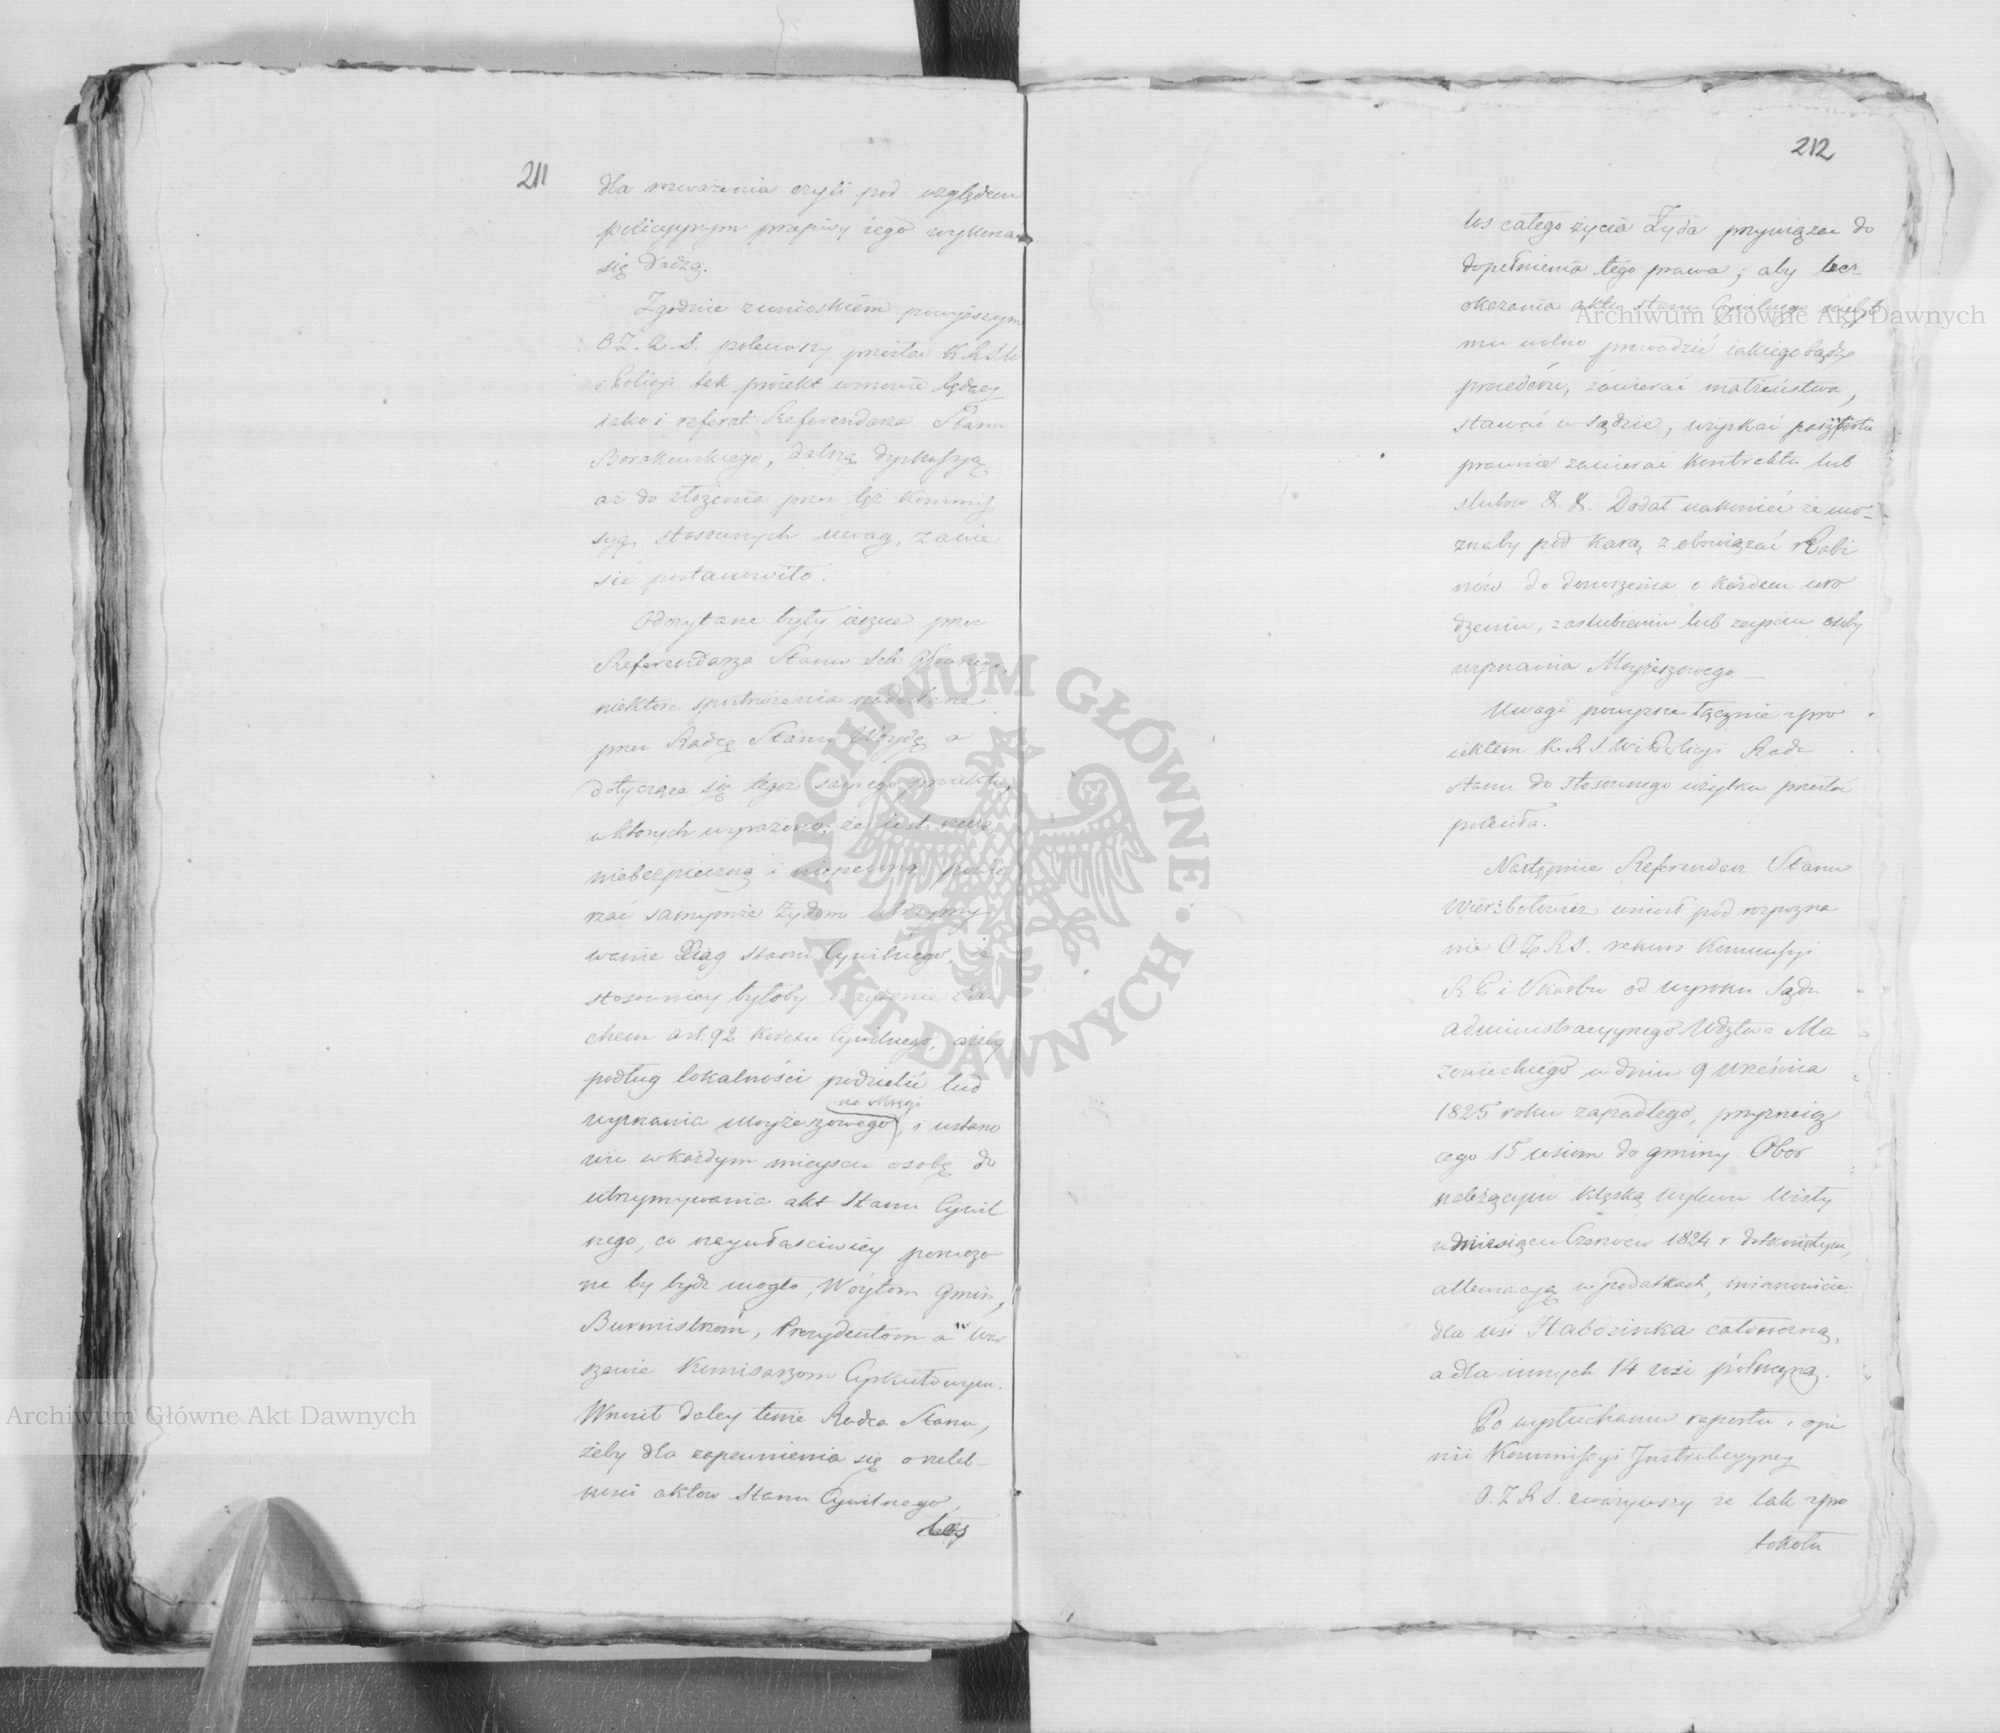 211
dla rozważenia czyli pod względem
policyjnym przepisy iego wykonać
się dadzą.
Zgodnie z wnioskiem powyższym
O.Z.R.S. polecający przesłać K.R.S.W.
i Policyi tak proiekt w mowie będący
iako i referat Referendarza Stanu
dalszą dyskussyą
aż do złożenia przez tęż Kommis
syią stosownych uwag, zawie
sić postanowiło.
Odczytane były ieszcze przez
Referendarza Stanu
niektóre spostrzeżenia nadesłane
przez Radcę Stanu Woydę a
dotyczące się tegoż samego proiektu,
w których wyrażono; że iest rzeczą
niebezpieczną i niepewną powie
rzać samymże Żydom utrzymy
wanie Xiąg stanu Cywilnego, że
stosowniey byłoby i zgodnie z du
chem art: 92 Kodexu Cywilnego, ażeby
podług lokalności podzielić lud
na okręgi
wyznania Moyżeszowego, i ustano
wić w każdym mieyscu osobę do
utrzymywania akt Stanu Cywil
nego, co naywłaściwiey poruczo
ne by bydź mogło, Wóytom Gmin,
Burmistrzom, Prezydentom a w War
szawie Komisarzom Cyrkułowym.
Wnosił daley tenże Radca Stanu,
żeby dla zapewnienia się o rzetel-
ności aktow Stanu Cywilnego,
los
212
los całego życia Żyda przywiązać do
dopełnienia tego prawa; aby bez
okazania aktu stanu Cywilnego nie było
mu wolno prowadzić iakiegobądź
procederu, zawierać małżeństwa,
stawać w sądzie, uzyskać paszportu
prawnie zawierać kontraktu lub
slubow &. &. Dodał nakoniec że mo-
żnaby pod karą zobowiązać Rabi
nów do donoszenia o każdem uro
dzeniu, zaslubieniu lub zeyściu osoby
wyznania Moyżeszowego
Uwagi powyższe łącznie z pro
iektem K.R.S.W. i Policyi Rada
Stanu do stosownego użytku przesłać
poleciła.
Następnie Referendarz Stanu
Wierzbołowicz wniosł pod rozpozna
nie O.Z.R.S. rekurs Kommissyi
R.P. i Skarbu od wyroku Sądu
Administracyynego Wdztwa Ma
zowieckiego w dniu 9 Września
1825 roku zapadłego, przyznaią
cego 15 wsiom do gminy Obor
należącym klęską wylewu Wisły
w miesiącu Czerwcu 1824 r. dotkniętym,
allewiacyą w podatkach, mianowicie
dla wsi Habdzinka całoroczną,
a dla innych 14 wsi półroczną.
Po wysłuchaniu raportu i opi
nii Kommissyi Instrukcyyney
O.Z.R.S. zważywszy że tak z pro
tokołu
Archiwum Główne Akt Dawnych
Archiwum Główne Akt Dawnych
ARCHIWUM GŁÓWNE AKT DAWNYCH